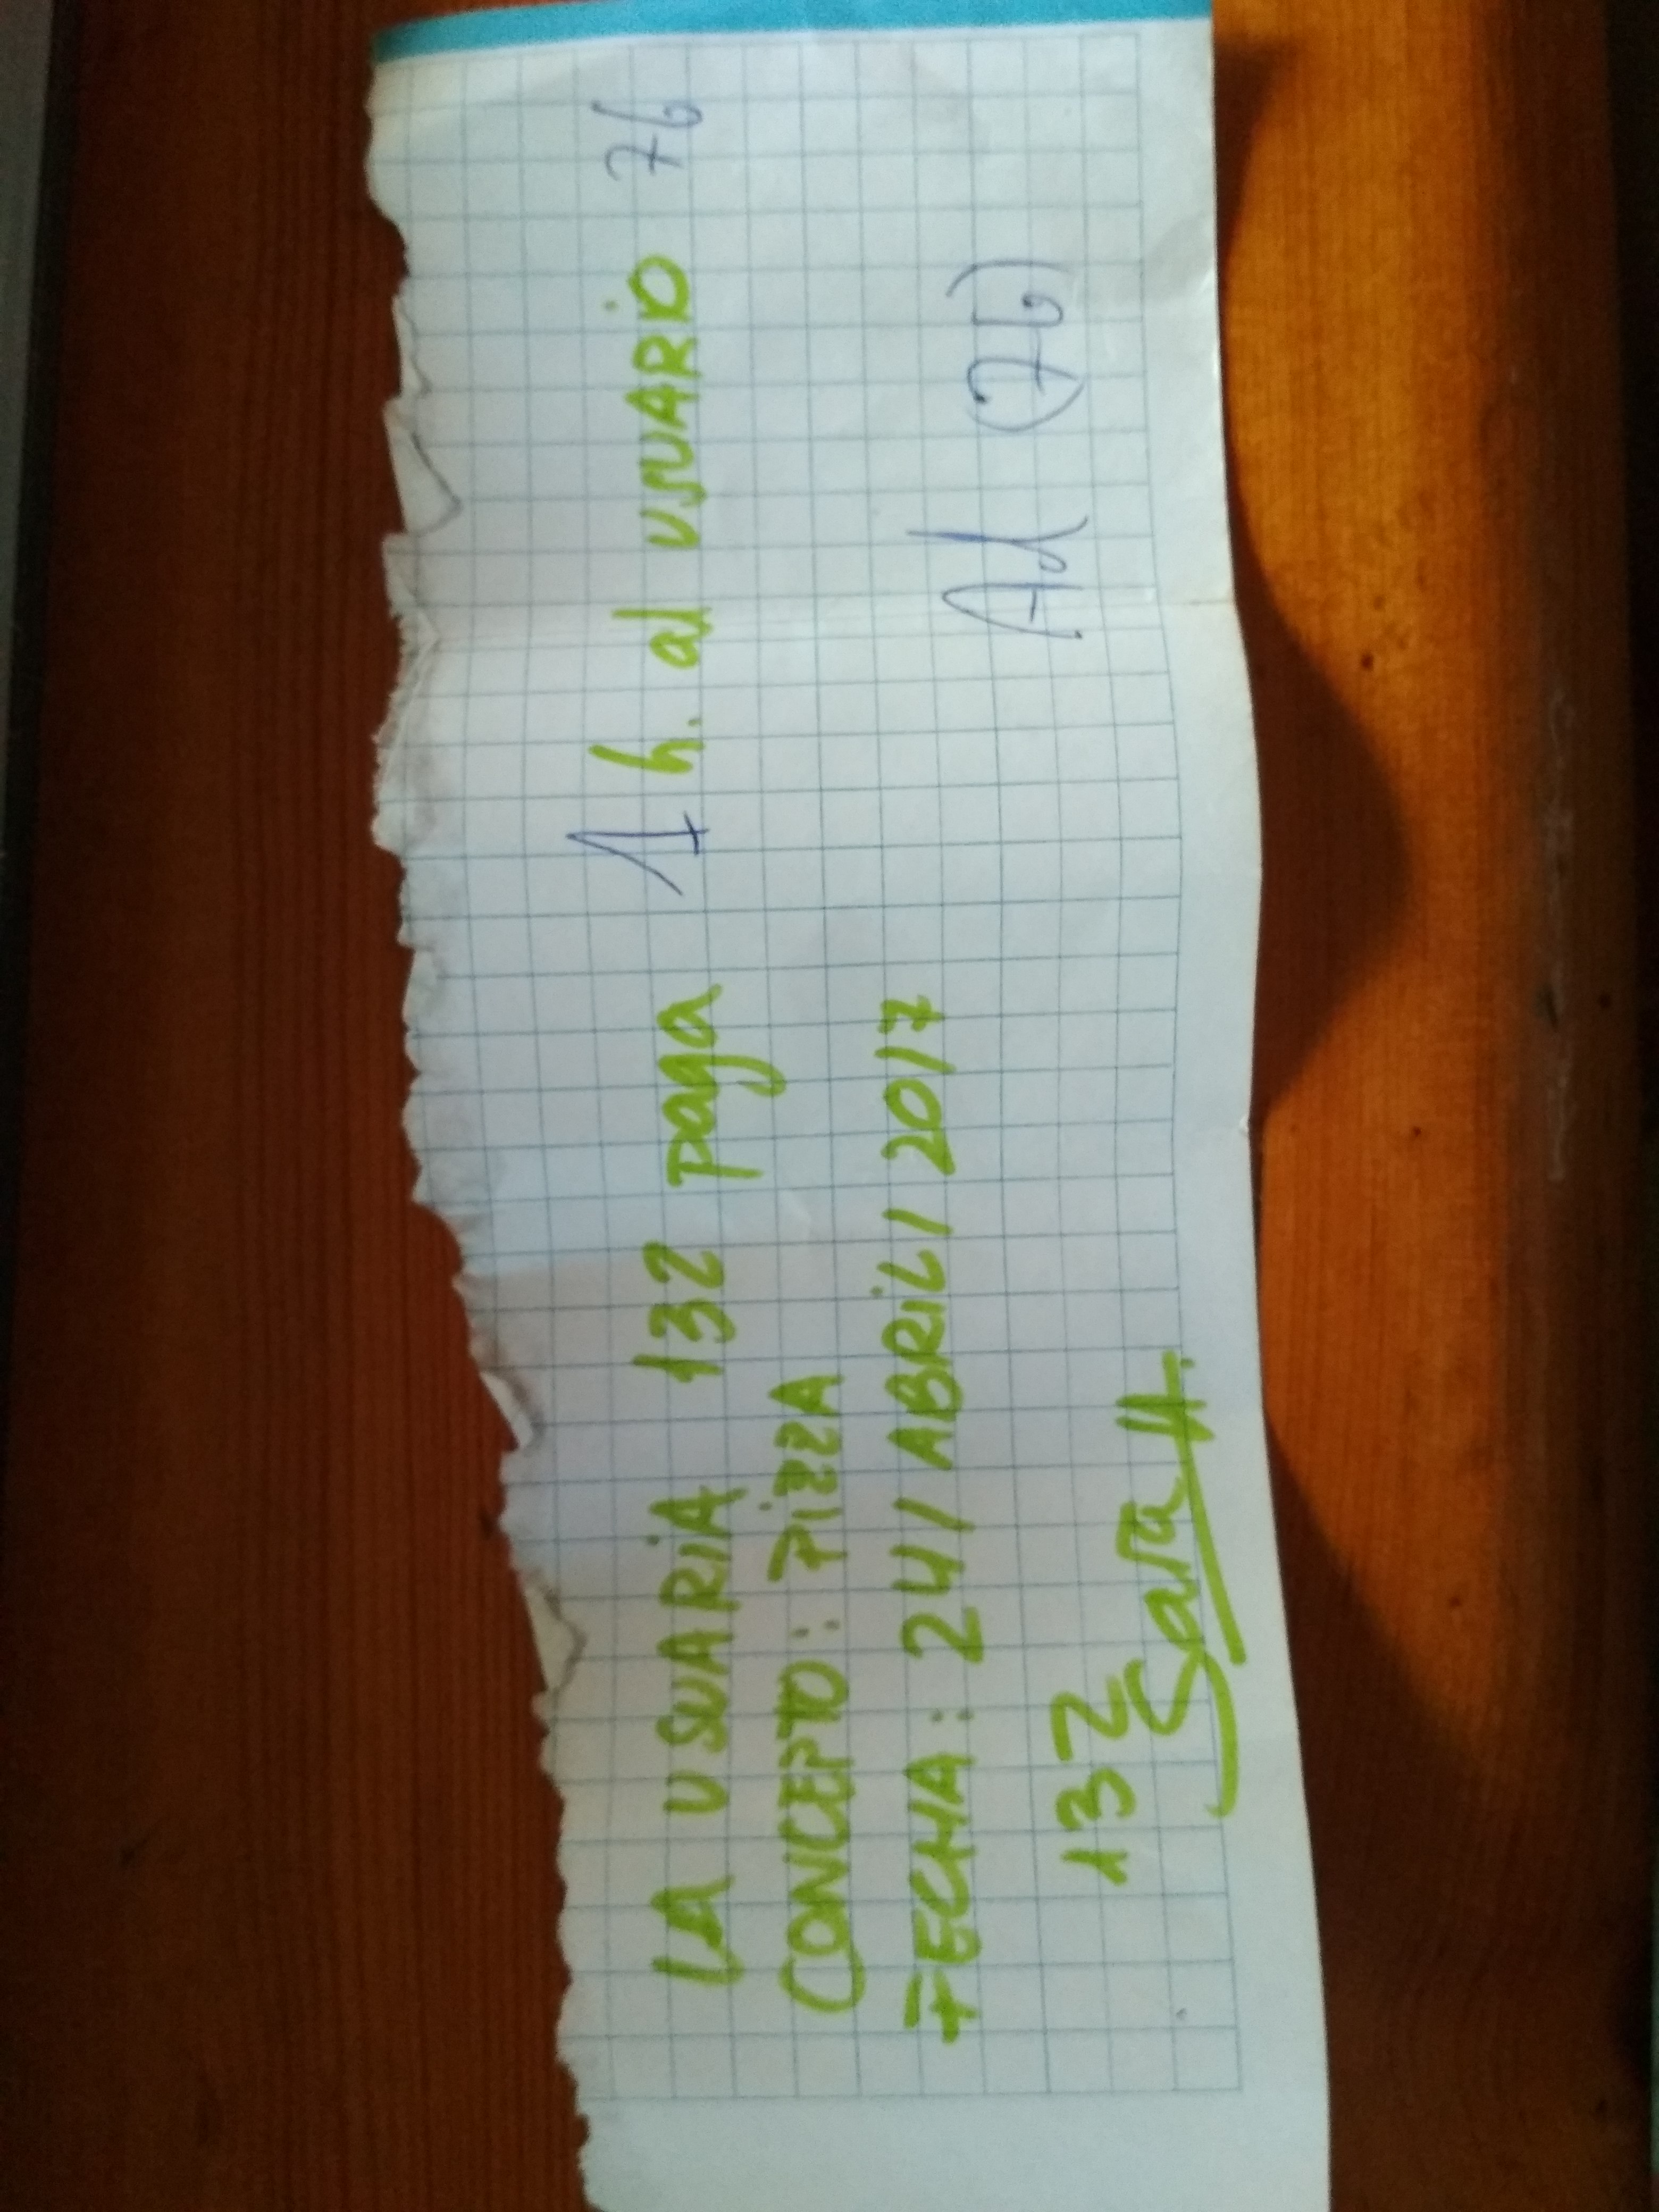 LA USUARiA 132 paga 1 h. al USUARiO 76
CONCEPTO: PiZZA
FECHA: 24/ABRiL/2017
Ad (76)
132
Sara H.